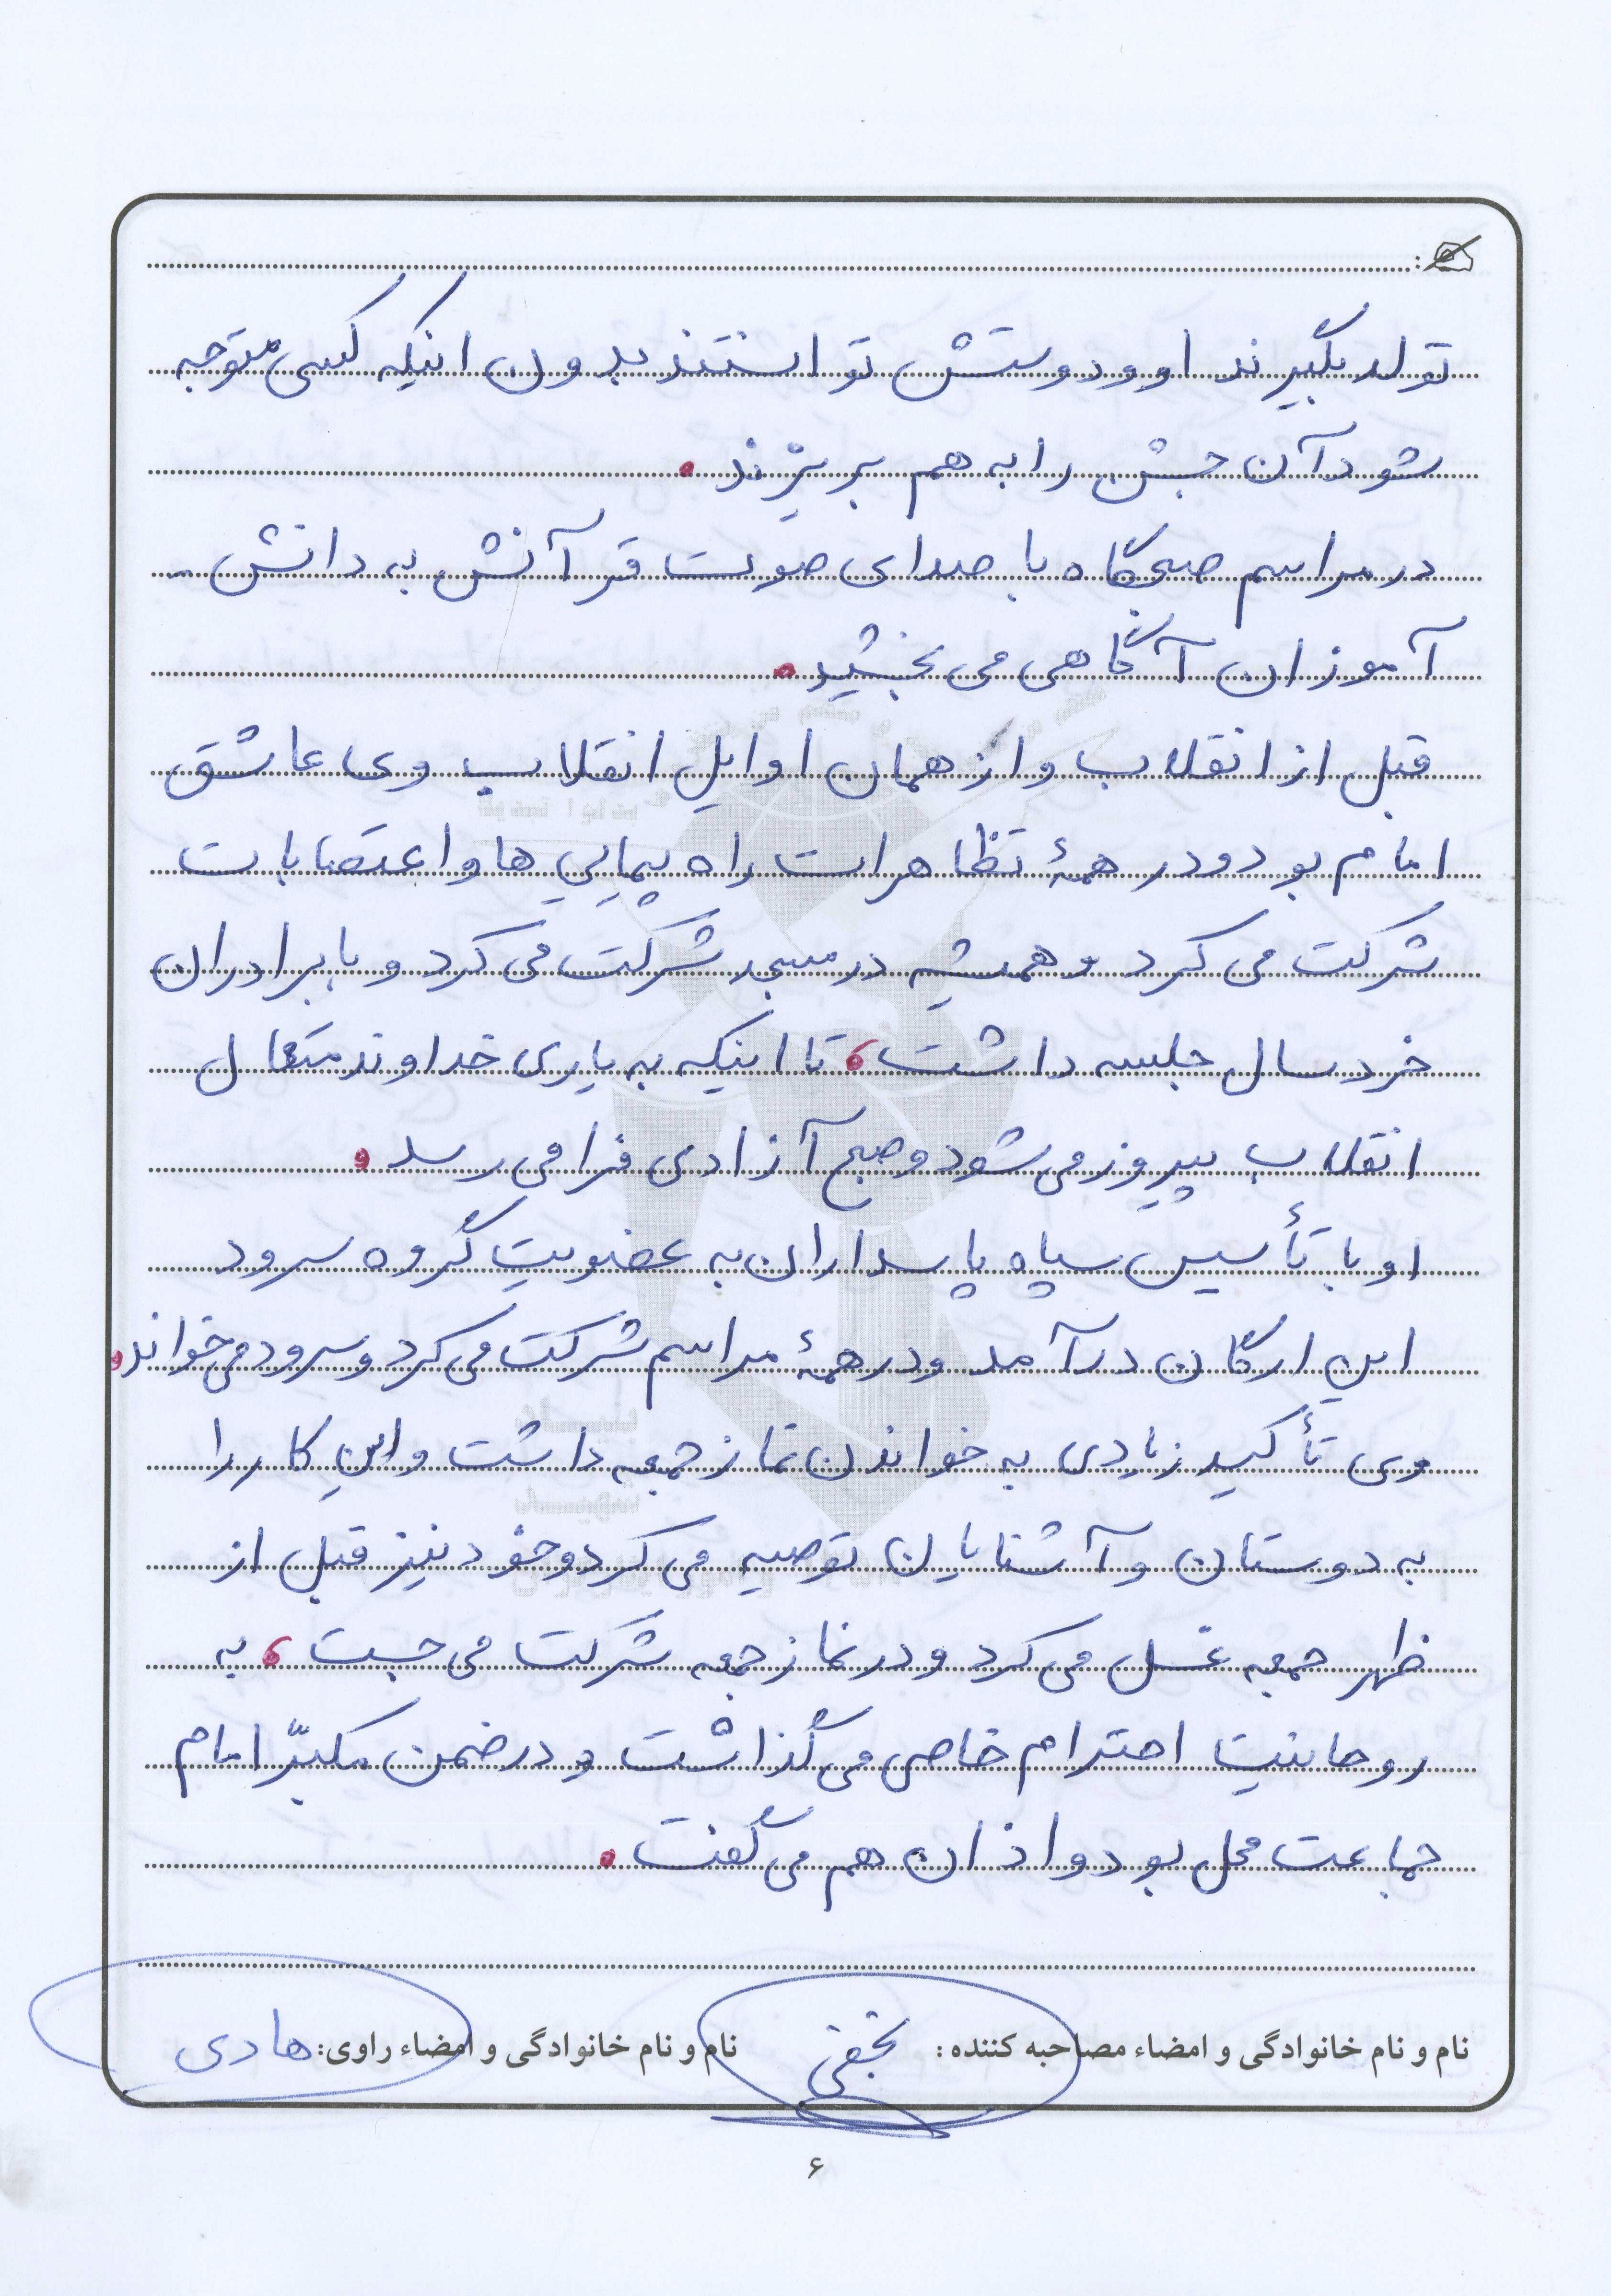 تولد بگیرند او و دوستش توانستند بدون اینکه کسی متوجه
شود آن جشن را به هم بریزند.
در مراسم صبحگاه با صدای صوت قرآنش به دانش-
آموزان آگاهی می بخشید.
قبل از انقلاب و از همان اوایل انقلاب وی عاشق
امام بود و در همهٔ تظاهرات راه پیمایی ها و اعتصابات
شرکت می کرد و همیشه در مسجد شرکت می کرد و با برادران
خردسال جلسه داشت، تا اینکه به یاری خداوند متعال
انقلاب پیروز می شود و صبح آزادی فرا می رسد.
او با تأسیس سپاه پاسداران به عضویت گروه سرود
این ارگان درآمد و در همهٔ مراسم شرکت می کرد و سرود می خواند.
وی تأکید زیادی به خواندن نماز جمعه داشت و این کار را
به دوستان و آشنایان توصیه می کرد و خود نیز قبل از
ظهر جمعه غسل می کرد و در نماز جمعه شرکت می جست، به
روحانیت احترام خاصی می گذاشت و در ضمن مکبّر امام
جماعت محل بود و اذان هم می گفت.
نام و نام خانوادگی و امضاء مصاحبه کننده: نام و نام خانوادگی و امضاء راوی: هادی
۶